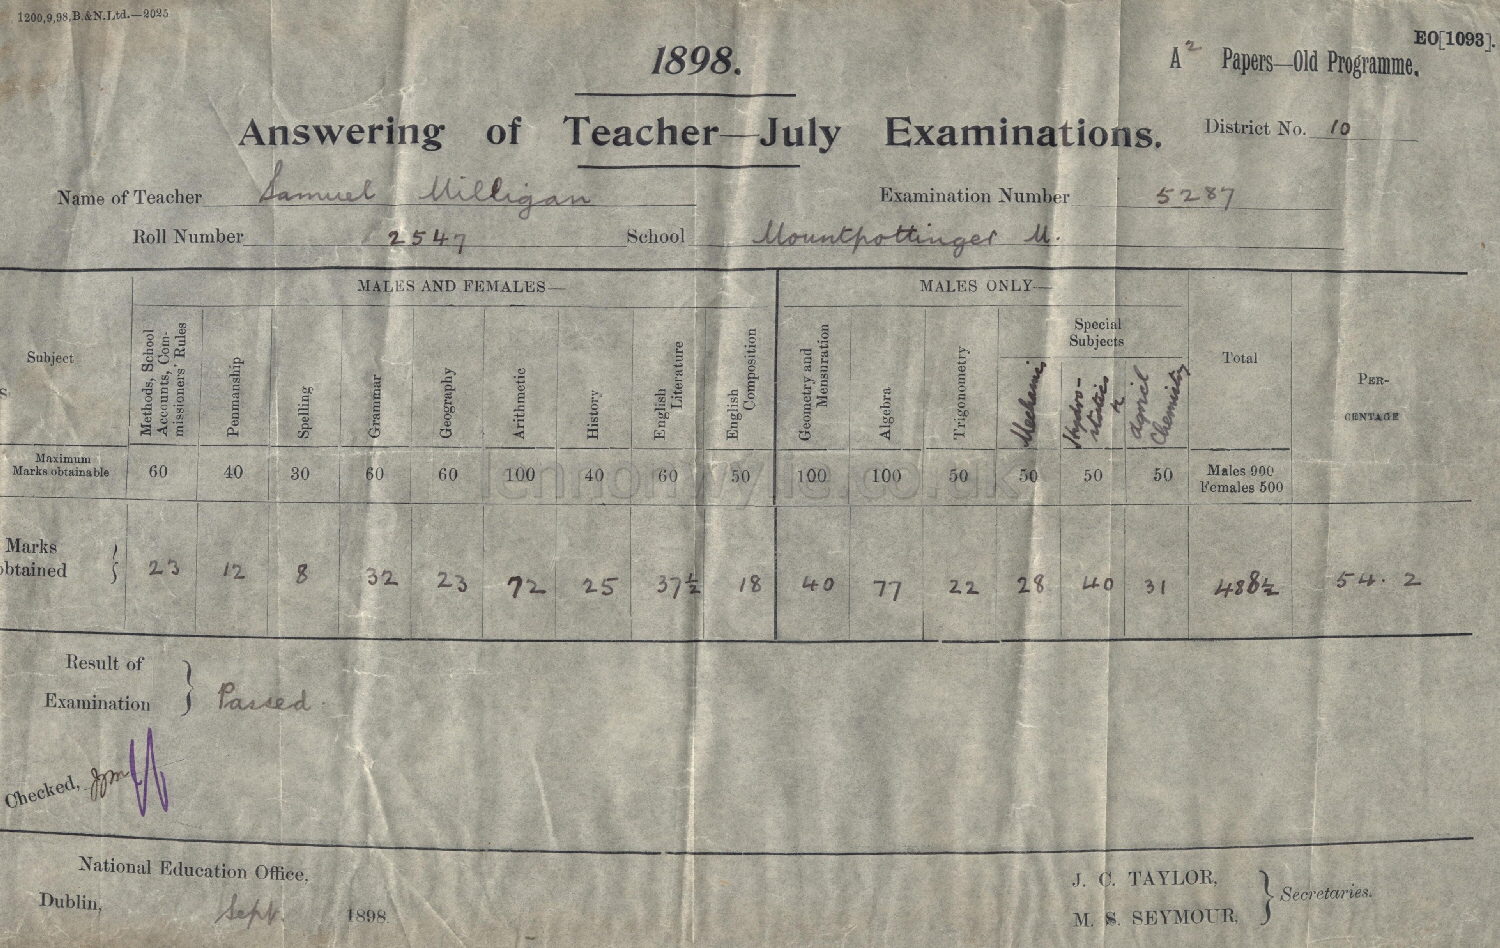 1200,9,98,B.&N.Ltd.—2025
EO[1093].
1898.
A2 Papers—Old Programme.
Answering of Teacher—July Examinations.
District No. 10
Name of Teacher Samuel Milligan
Examination Number 5287
Roll Number 2547 School Mountpottinger M.
MALES AND FEMALES—
MALES ONLY—
Subject
Methods, School Accounts, Commissioners' Rules
Penmanship
Spelling
Grammar
Geography
Arithmetic
History
English Literature
English Composition
Geometry and Mensuration
Algebra
Trigonometry
Special Subjects
Mechanics
Hydro-statics &
Agricl Chemistry
Total
PER-CENTAGE
S.
Maximum Marks obtainable 60 40 30 60 60 100 40 60 50 100 100 50 50 50 50 Males 900 Females 500
Marks obtained 23 12 8 32 23 72 25 37½ 18 40 77 22 28 40 31 488½ 54.2
Result of
Examination
Passed
Checked, Jpm
National Education Office,
Dublin, Sept. 1898
J. C. TAYLOR,
M. S. SEYMOUR,
Secretaries.
lennonwylie.co.uk